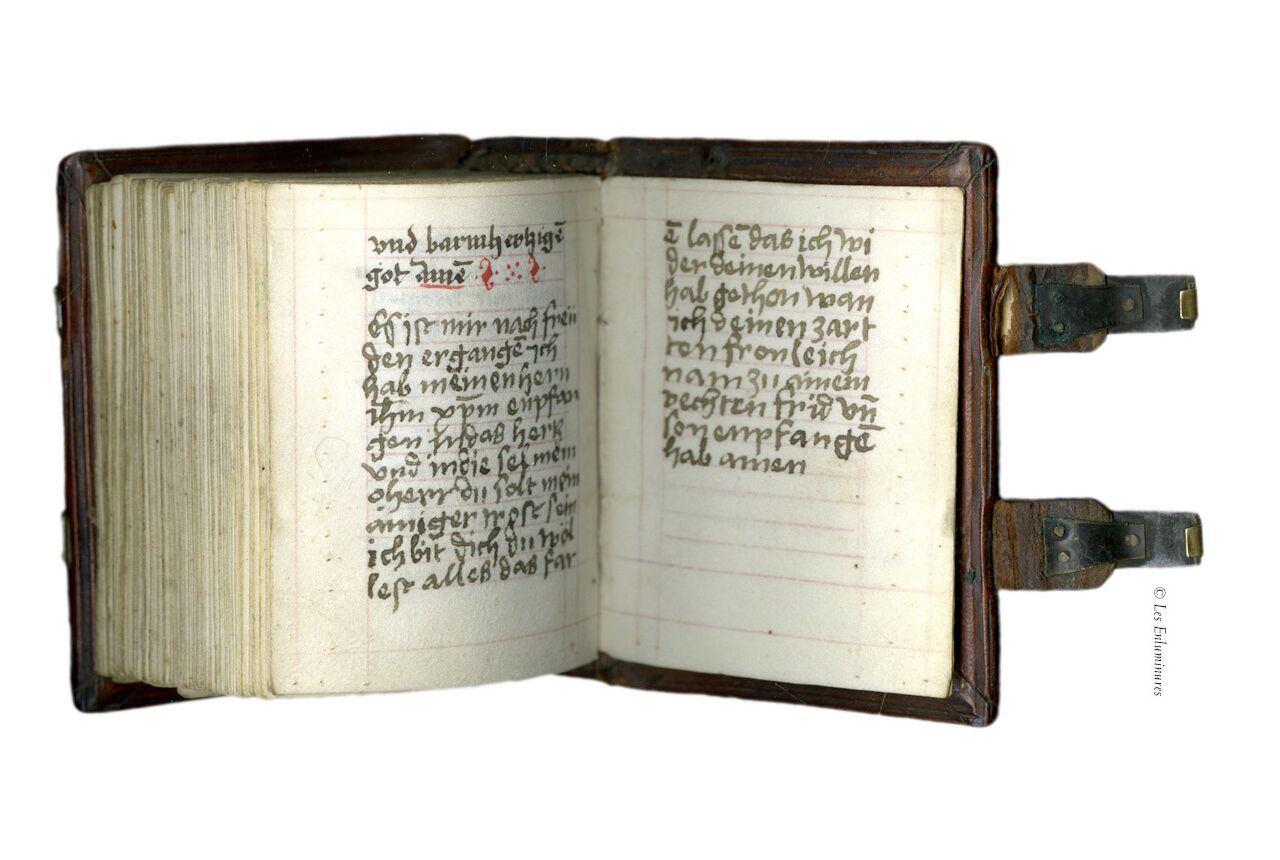 vnd barmhertzigē
got amē
Es ist mir nach freü
den ergangē ich
hab meinen hern
ihm xpm enpfan
gen in das hertz
vnd in die sel mein
o herr du solt mein
ainiger trost sein
ich bit dich du wöl
lest alles das far
ē lassē das ich wi
der deinen willen
hab gethon wan
ich deinen zart
ten fronleich
nam zu ainem
rechten frid vn̄
son enpfangē
hab amen
© Les Enluminures